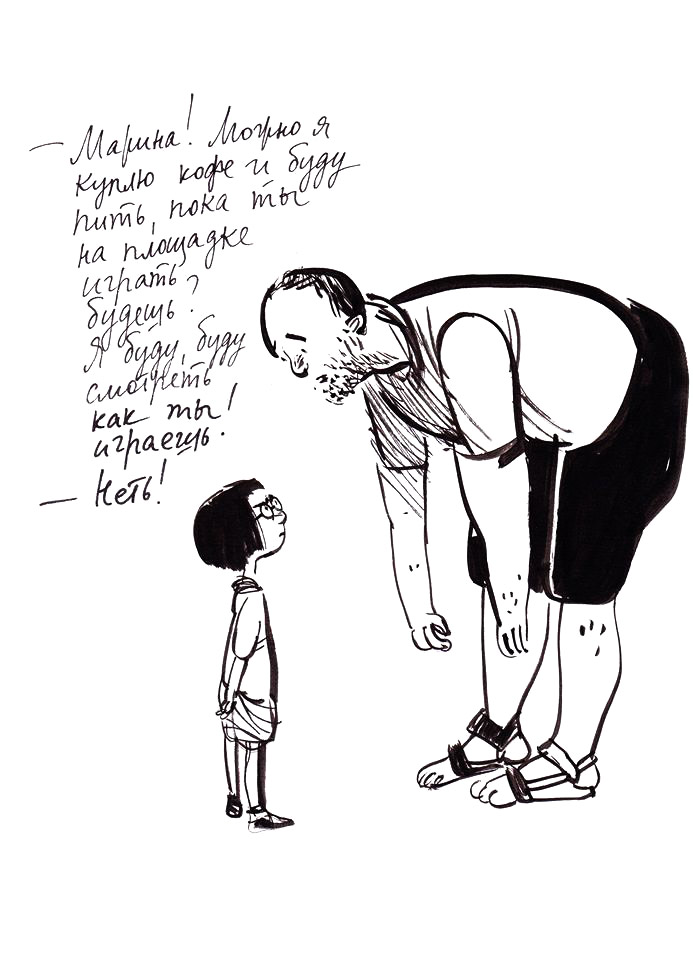 — Марина! Можно я
куплю кофе и буду
пить, пока ты
на площадке
играть
будешь?
Я буду, буду
смотреть
как ты!
играешь.
— Неть!